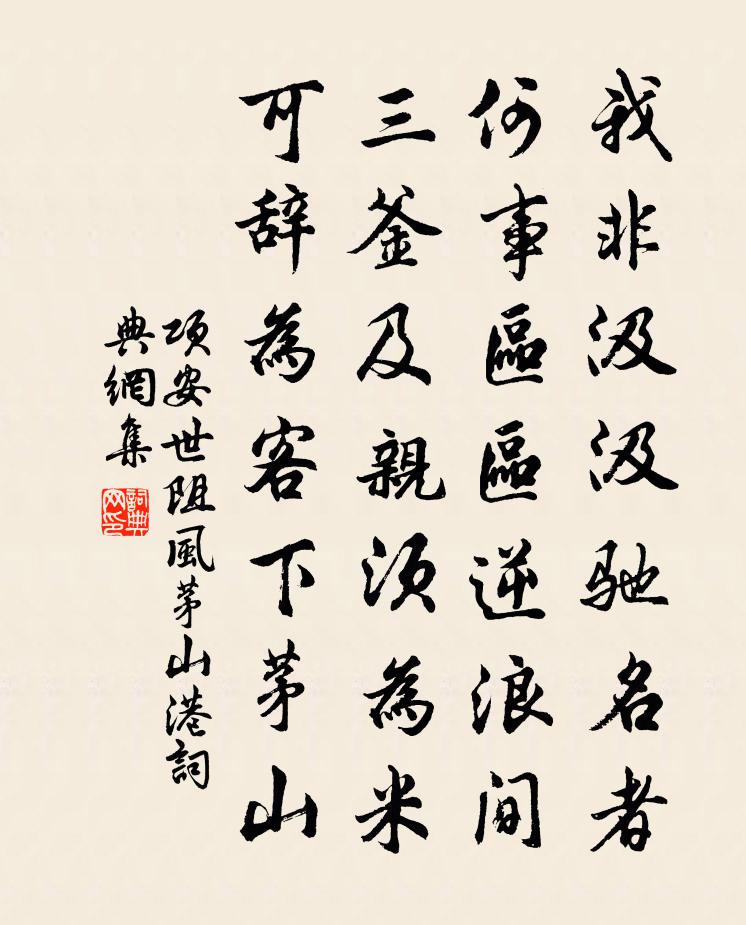 我非汲汲驰名者
何事區區逆浪间
三釜及親须為米
可辞為客下茅山
项安世阻風茅山港詞
典網集
詞典
网印